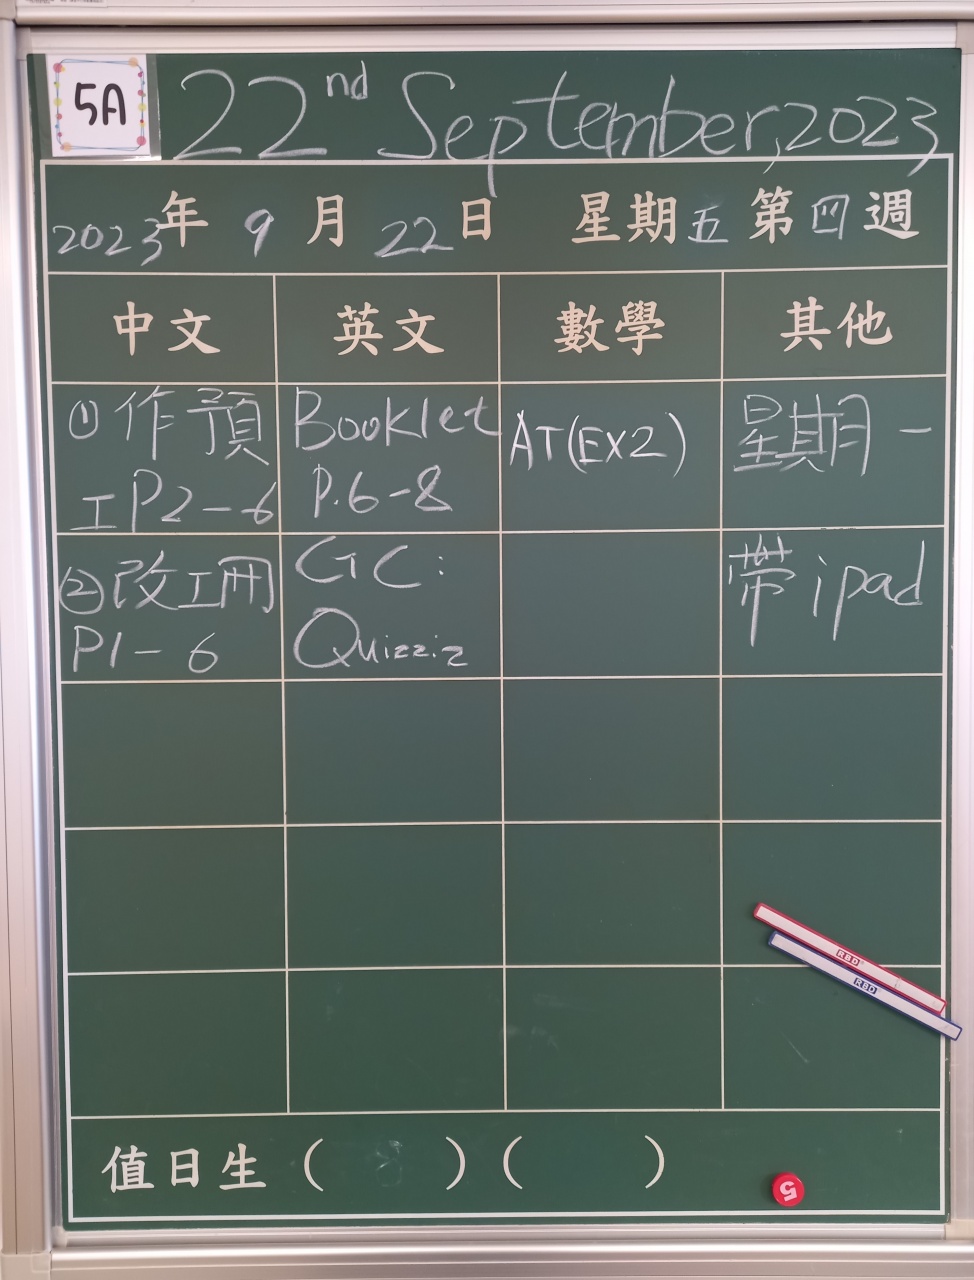 5A
22nd September, 2023
2023年 9月 22日 星期五 第四週
中文 英文 數學 其他
①作預 Booklet AT(EX2) 星期一
工P2-6 P.6-8
②改工冊 GC: 帶ipad
P1-6 Quizziz
RBD
RBD
值日生( )( )
5